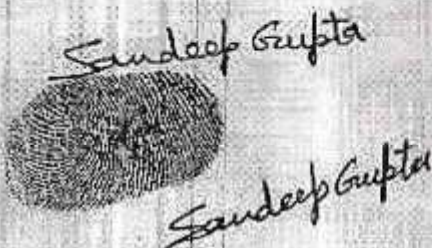 Sandeep Gupta
Sandeep Gupta